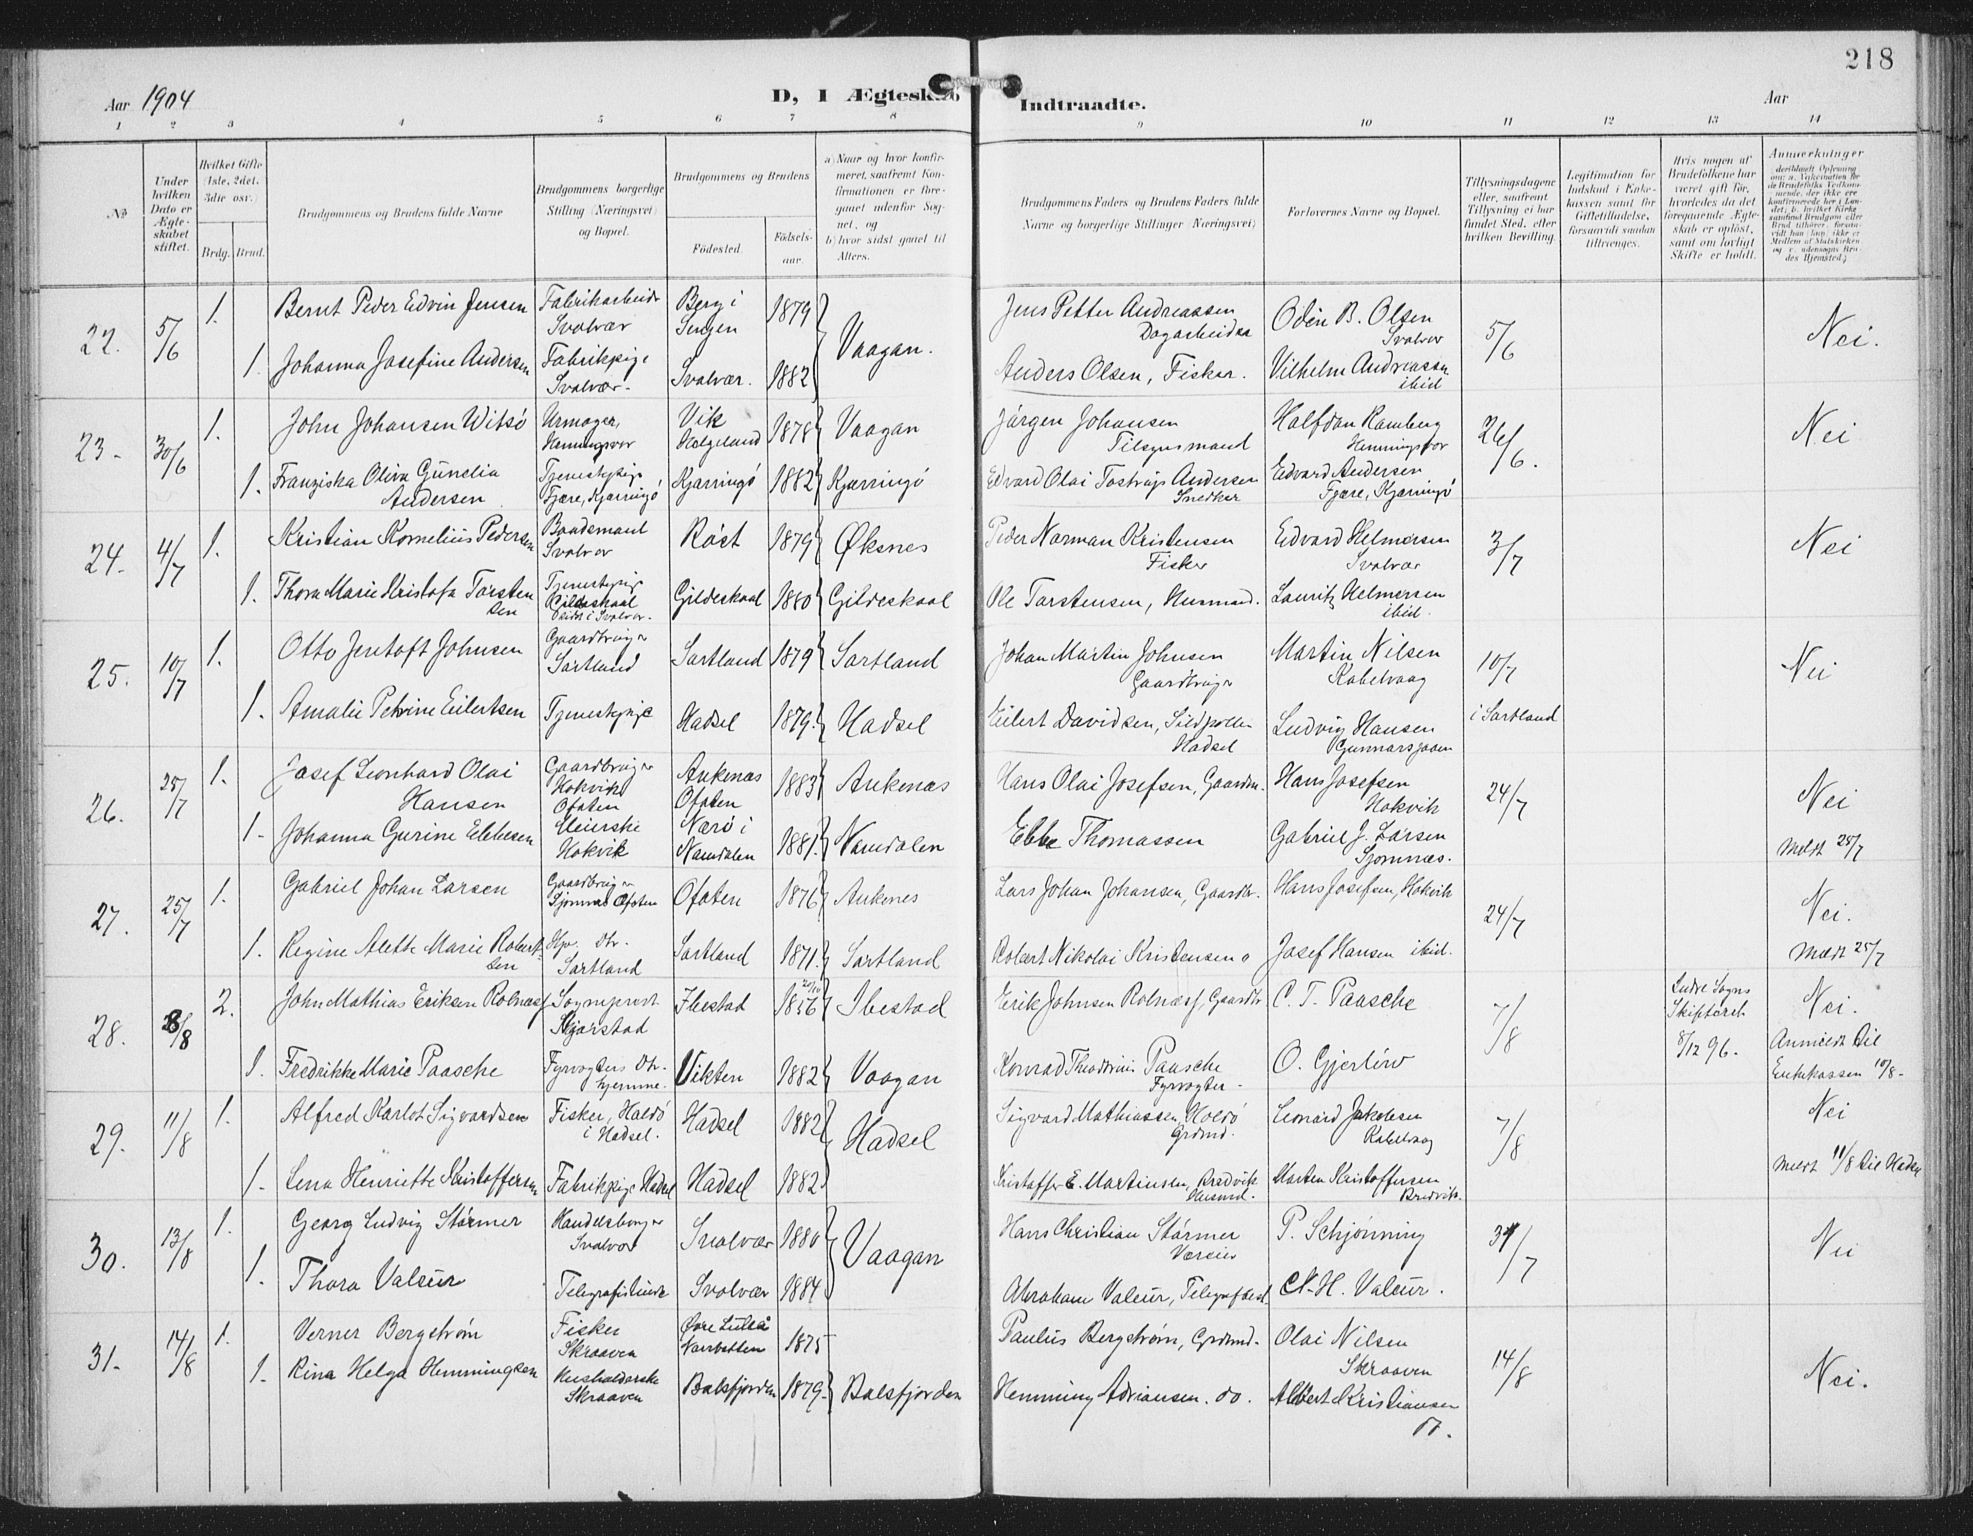 218
Aar 1904
D, I Ægteskab Indtraadte.
Aar
1 2 3 4 5 6 7 8 9 10 11 12 13 14
No
Under hvilken Dato er Ægteskabet stiftet.
Hvilket Gifte (1ste, 2det, 3die osv.)
Brdg. Brud.
Brudgommens og Brudens fulde Navne
Brudgommens borgerlige Stilling (Næringsvei) og Bopæl.
Brudgommens og Brudens
Fødested.
Fødsels-aar.
a) Naar og hvor konfirmeret, saafremt Konfirmationen er foregaaet udenfor Sognet, og
b) hvor sidst gaaet til Alters.
Brudgommens Faders og Brudens Faders fulde Navne og borgerlige Stillinger (Næringsvei)
Forlovernes Navne og Bopæl.
Tillysningsdagene eller, saafremt Tillysning ei har fundet Sted, efter hvilken Bevilling.
Legitimation for Indskud i Enkekassen samt for Giftetilladelse, forsaavidt saadan tiltrænges.
Hvis nogen af Brudefolkene har været gift før, hvorledes da det foregaaende Ægteskab er opløst, samt om lovligt Skifte er holdt.
Anmerkninger
22. 5/6 1. Bernt Peder Edvin Jensen Fabrikarbeider Svolvær Berg i Senjen 1879 Vaagan. Jens Petter Andreassen Dagarbeider Odin B. Olsen Svolvær 5/6 Nei.
1. Johanna Josefine Andersen Fabrikpige Svolvær. Svolvær. 1882 Anders Olsen, Fisker. Vilhelm Andreassen ibid
23. 30/6 1. John Johansen Witsø Urmager, Henningsvær Vik Helgeland 1878 Vaagan Jørgen Johansen Tilsynsmand Halfdan Ramberg Henningsvær 26/6. Nei
1. Franziska Oliva Gunelia Andersen Tjenestepige Fjære, Kjerringø Kjerringø 1882 Kjerringø Edvard Olai Tostrup Andersen Snedker Edvard Andersen Fjære, Kjerringø
24. 4/7 1. Kristian Kornelius Pedersen Baadsmand Svolvær Røst 1879 Øksnes Peder Norman Kristensen Fisker Edvard Helmersen Svolvær 3/7 Nei
1. Thora Marie Kristofa Torstensen Tjenestepige Gildeskaal Gildeskaal 1880 Gildeskaal Ole Torstensen, Husmand. Lauritz Helmersen ibid.
25. 10/7 1. Otto Jentoft Johnsen Gaardbruger Sortland Sortland 1879 Sortland Johan Martin Johnsen Gaardbruger Martin Nilsen Kabelvaag 10/7 Nei
1. Amalie Petrine Eilertsen Tjenestepige Hadsel 1879. Hadsel Eilert Davidsen, Sildpollen Hadsel Ludvig Hansen i Sortland
26. 25/7 1. Josef Leonhard Olai Hansen Gaardbruger Hokvik Ofoten Ankenæs Ofoten 1883 Ankenæs Hans Olai Josefsen, Gaardm. Hans Josefsen Hokvik 24/7 Nei
1. Johanna Gurine Ebbesen Meierske Hokvik Nærø i Namdalen 1881. Namdalen Ebbe Thomassen Gabriel J. Larsen Sjomnæs. Meldt 25/7
27. 25/7 1. Gabriel Johan Larsen Gaardbruger Sjomnæs Ofoten Ofoten 1876 Ankenes Lars Johan Johansen, Gaardbr. Hans Josefsen, Hokvik 24/7 Nei.
1. Regine Alette Marie Robertsen Sortland Sortland 1871. Sortland Robert Nikolai Kristensen Josef Hansen ibid. Meldt 25/7
28. 8/8 2. John Mathias Eriksen Rolnæs Sogneprest Skjerstad Ibestad 1856 Ibestad Erik Johnsen Rolnæs, Gaardbr C. T. Paasche 7/8 Skifteret 8/12 96. Nei.
1. Fredrikke Marie Paasche Fyrvogters Dtr. hjemme. Vikten 1882 Vaagan Konrad Theodrius Paasche Fyrvogter. O. Gjerløw Anmeldt til Enkekassen 10/8.
29. 11/8 1. Alfred Karlot Sigvardsen Fisker, Haldø i Hadsel. Hadsel 1882 Hadsel Sigvard Mathiassen, Holdø Grdmd. Leonard Jakobsen Kabelvaag 7/8 Nei
1. Lena Henriette Kristoffersen Fabrikpige Hadsel Hadsel 1882 Kristoffer E. Martinsen, Bredvik Husmd. Morten Kristoffersen Bredvik. Meldt 11/8 til Hadsel
30. 13/8 1. Georg Ludvig Størmer Handelsborger Svolvær Svolvær 1880 Vaagan Hans Christian Størmer Væreier P. Schjønning 31/7 Nei
1. Thora Valeur Telegrafistinde Svolvær 1884 Abraham Valeur, Telegrafbest. N. H. Valeur.
31. 14/8 1. Verner Bergstrøm Fisker Skraaven Øvre Luleå Norrbotten 1875 Paulus Bergstrøm, Grdmd. Olai Nilsen Skraaven 14/8 Nei.
1. Rina Helga Hemmingsen Husholderske Skraaven Balsfjorden 1879. Balsfjorden Hemming Adriansen. do. Albert Kristiansen do.